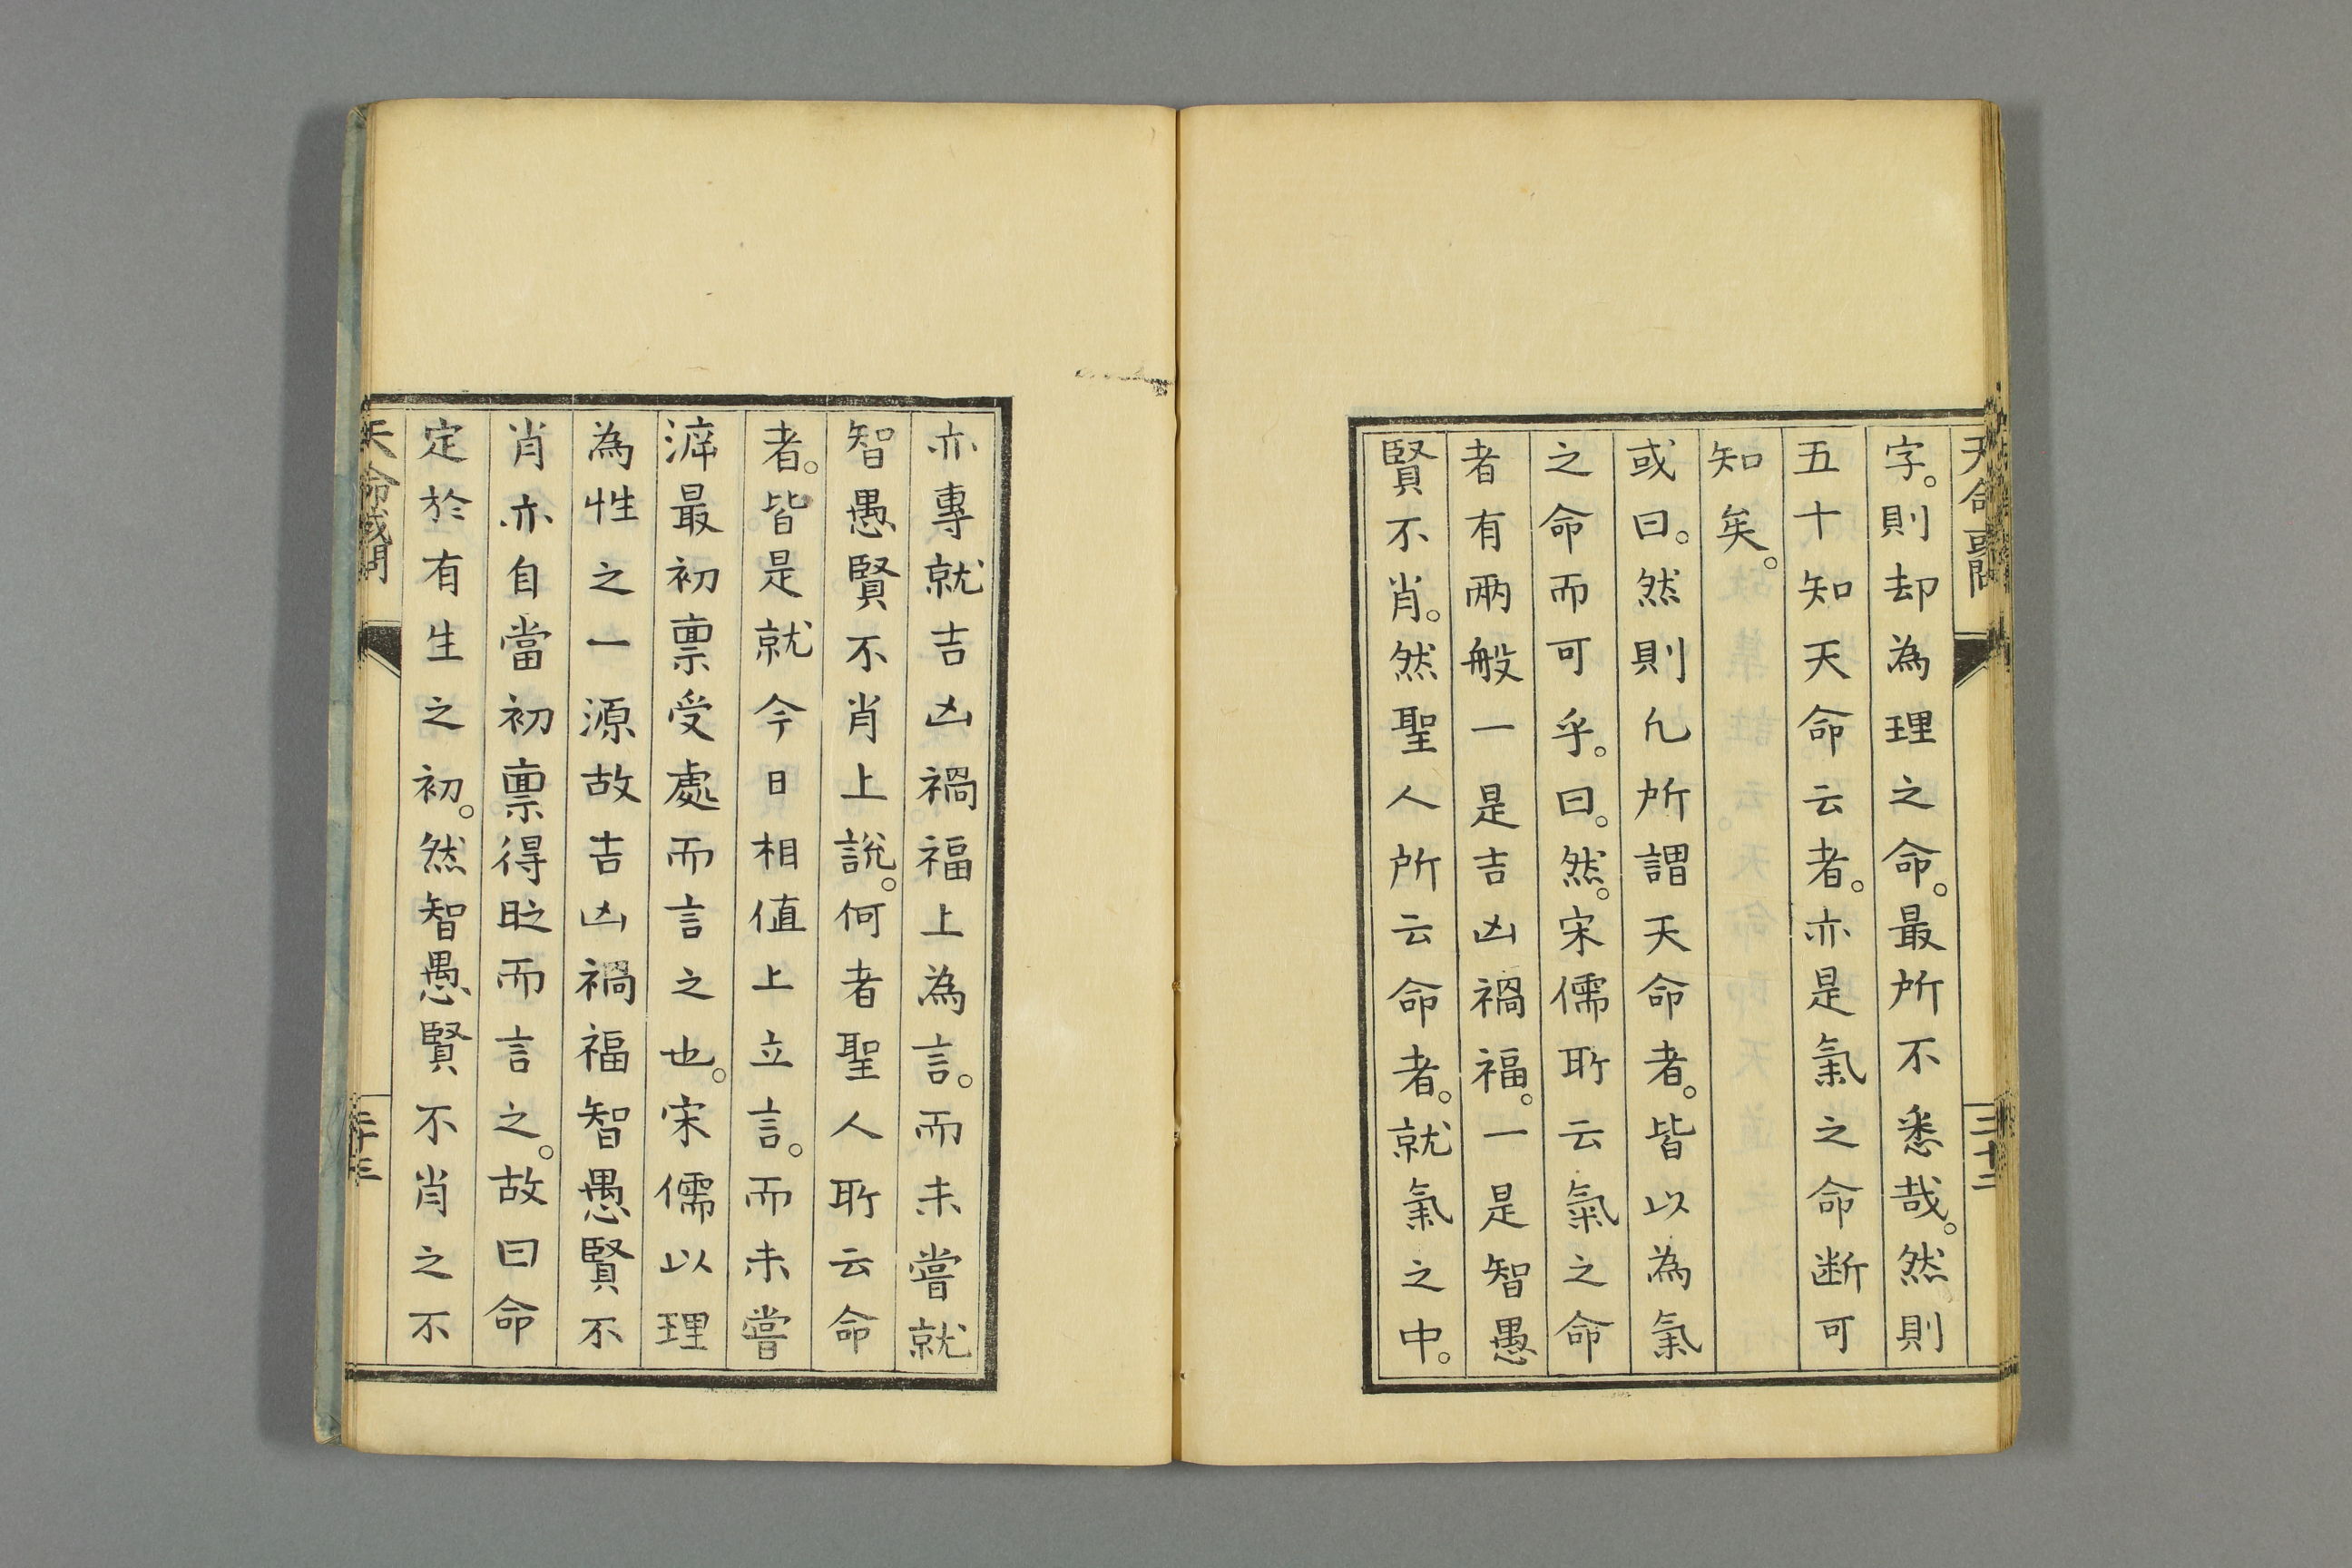 天命或問
二十二
字。則却為理之命。最所不悉哉。然則
五十知天命云者。亦是氣之命断可
知矣。
或曰。然則凢所謂天命者。皆以為氣
之命而可乎。曰。然。宋儒所云氣之命
者有兩般一是吉凶禍福。一是智愚
賢不肖。然聖人所云命者。就氣之中。
亦專就吉凶禍福上為言。而未嘗就
智愚賢不肖上說。何者聖人所云命
者。皆是就今日相值上立言。而未嘗
㴑最初禀受處而言之也。宋儒以理
為性之一源故吉凶禍福智愚賢不
肖亦自當初禀得㫐而言之。故曰命
定於有生之初。然智愚賢不肖之不
天命或問